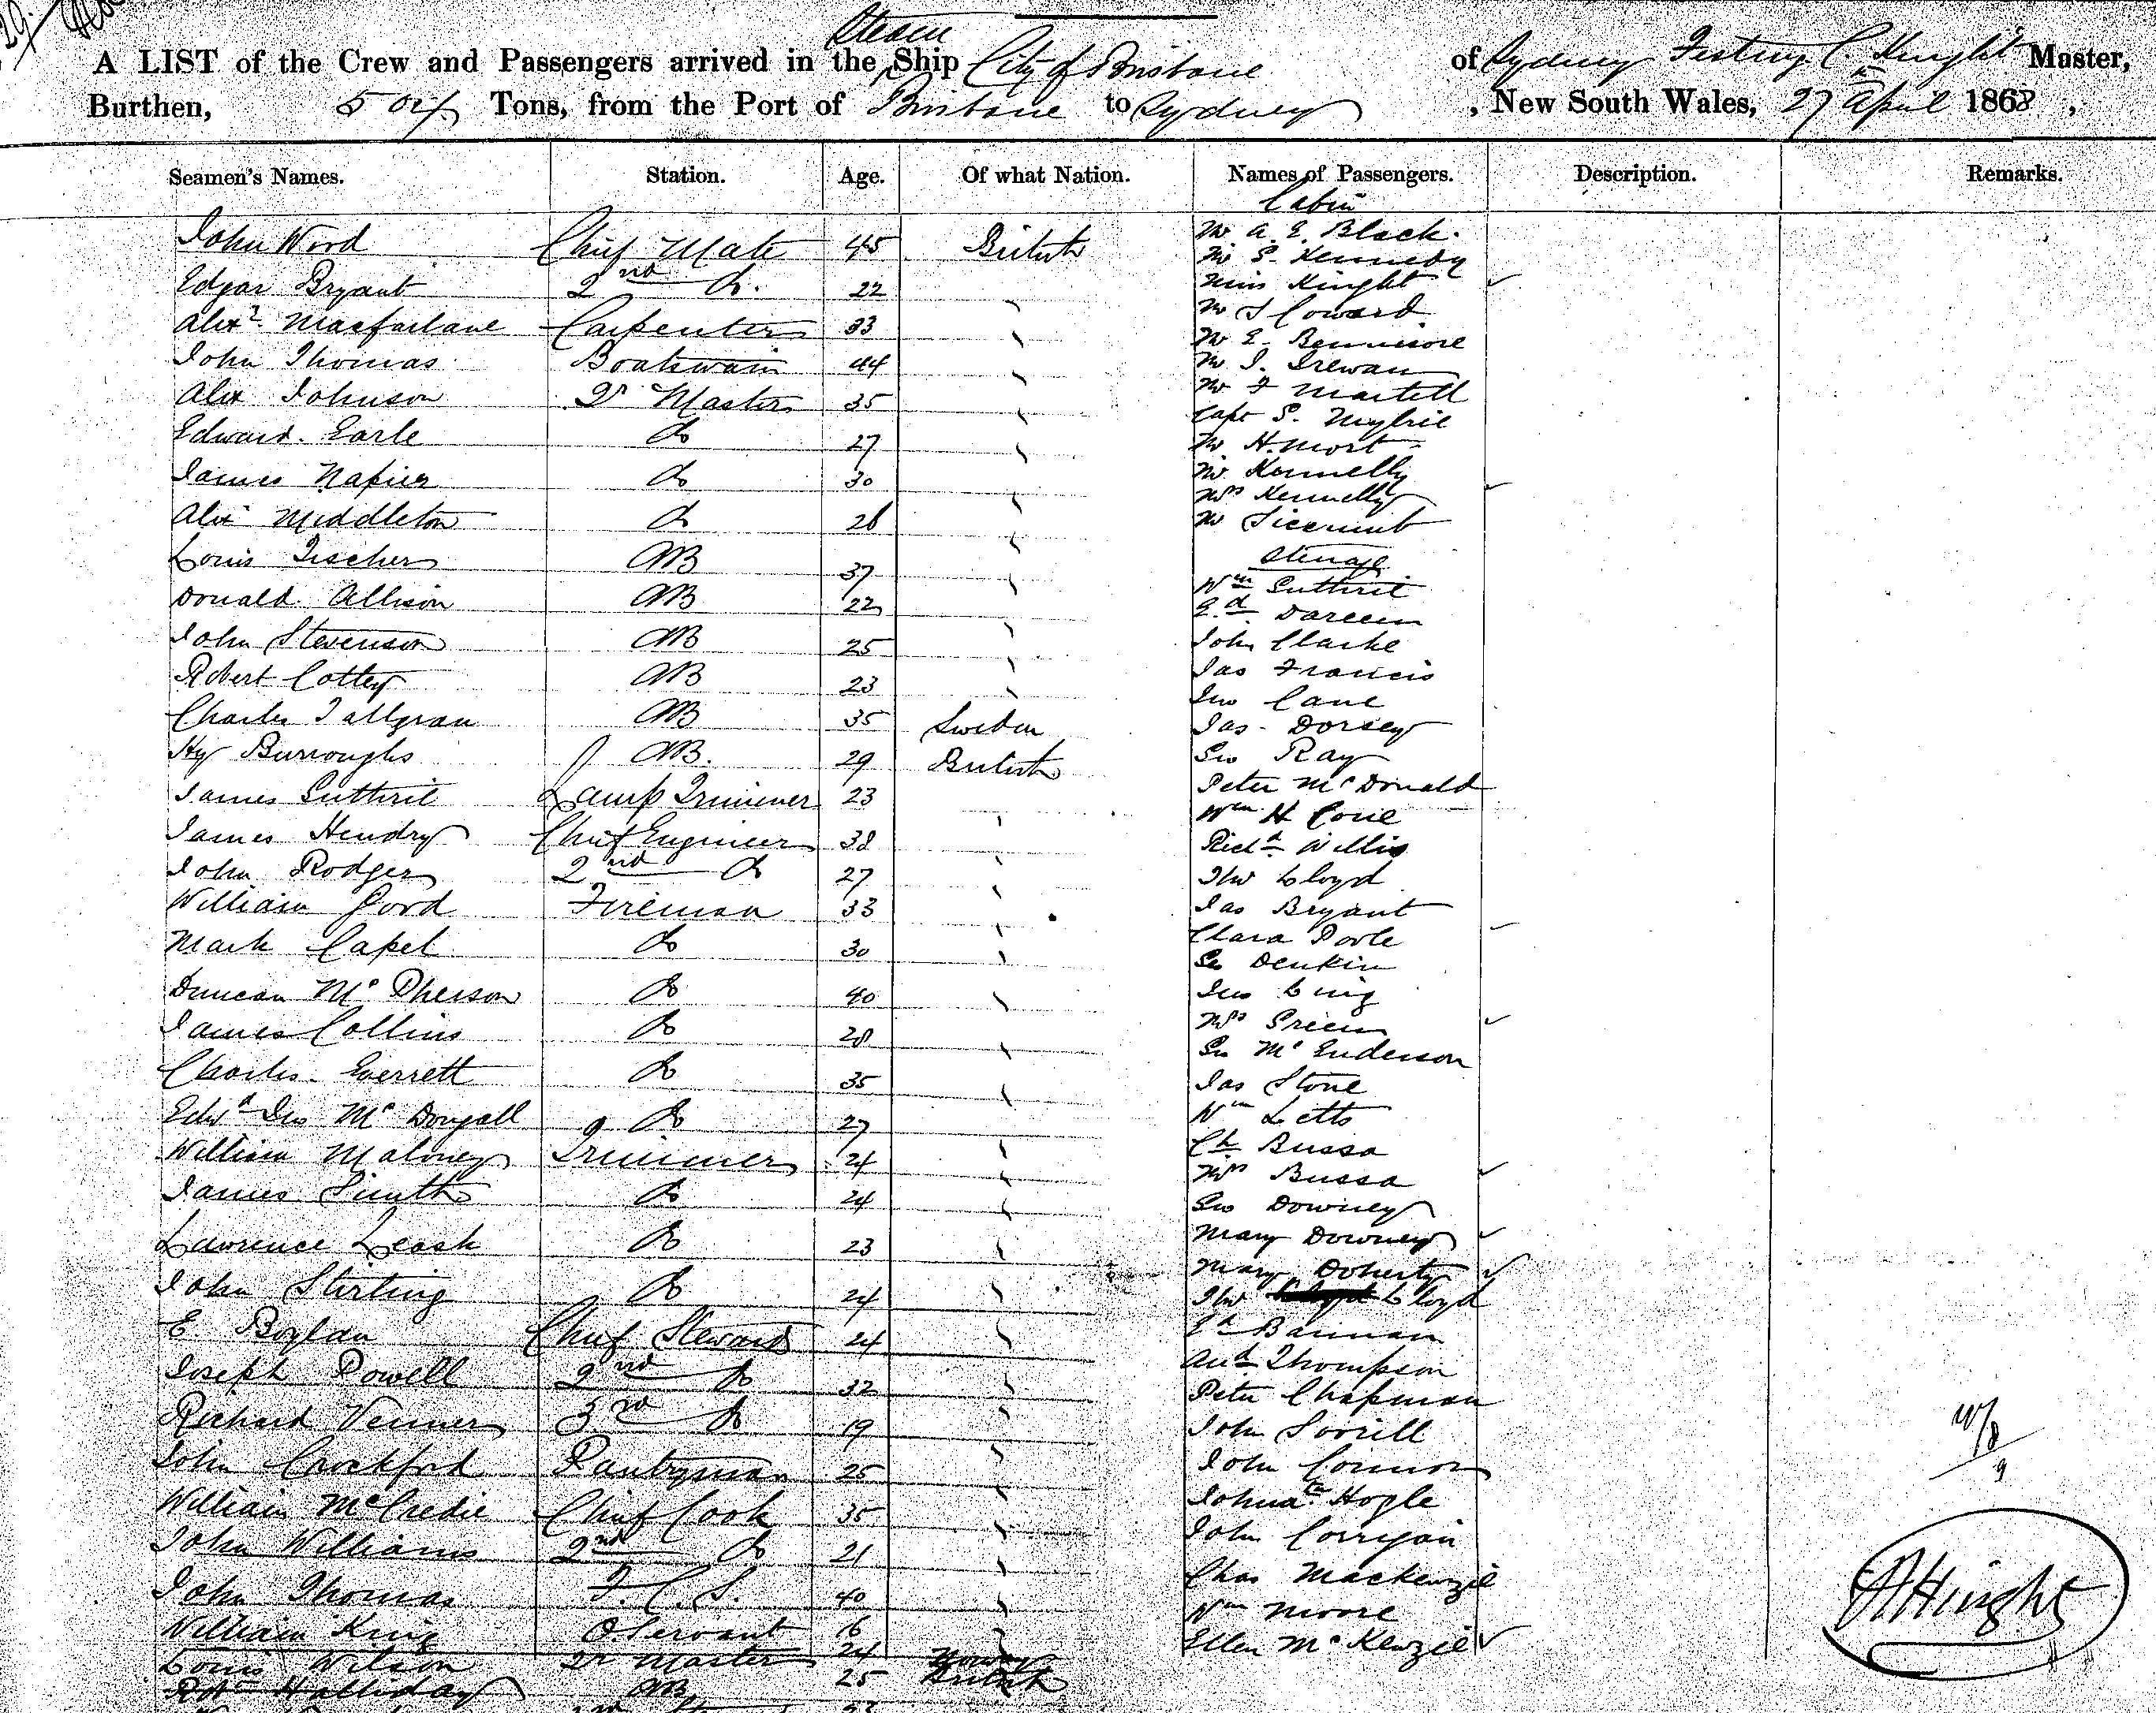 Steam
A LIST of the Crew and Passengers arrived in the Ship City of Brisbane of Sydney Knight Master,
Burthen, 504 Tons, from the Port of Brisbane to Sydney, New South Wales, 27 April 1868,
Seamen's Names. Station. Age. Of what Nation. Names of Passengers. Description. Remarks.
Cabin
John Wood Chief Mate 45 British Mr A. E. Black.
Mr S. Kennedy
Edgar Bryant 2nd Do. 22 Miss Knight
Mr J Coward
Alexr Macfarlane Carpenter 33
Mr E.
John Thomas Boatswain 44 Mr J.
Mr F Martell
Alex Johnson Qr Master 35 Capt S.
Edward Earle Do 27 Mr H. Mort
James Napier Do 30 Mr Kennelly
Mrs Kennelly
Alexr Middleton Do 28 Mr
Louis Tischer AB 37 Steerage
Wm Guthrie
Donald Allison AB 22 Ed
John Stevenson AB 25 John Clarke
Robert Cottey AB 23 Jas Francis
Jno Cane
Charles Tallgran AB 35 Sweden Jas. Dorsey
Hy Burroughs AB. 29 British Geo Ray
James Guthrie Lamp Trimmer 23 Peter McDonald
Wm H Cone
James Hendry Chief Engineer 38 Richd Willis
John Rodger 2nd Do 27 Thos Lloyd
William Good Fireman 33 Jas Bryant
Mark Capel Do 30 Clara Poole
Geo Denkin
Duncan McPherson Do 40 Jno
James Collins Do 28 Mrs Green
Geo McEnderson
Charles Everrett Do 35 Jas Stone
Edwd Jno McDougall Do 27 Wm Letts
Ch Bussa
William Maloney Trimmer 24 Mrs Bussa
James Smith Do 24 Geo Downey
Lawrence Leask Do 23 Mary Downey
Mary Doherty
John Stirling Do 24 Thos Lloyd
E Boylan Chief Steward 24 Ed
Joseph Powell 2nd Do 32 Andw Thompson
Peter Chapman
Richard Venner 3rd Do 19 John Sorrill
John Crockford Pantryman 25 John Connor
William McCredie Chief Cook 35 Hogle
John Williams 2nd Do 21 John Corrigan
John Thomas F. C. S. 40 Chas Mackenzie
Wm Moore
William King O. Servant 16 Ellen McKenzie
Louis Wilson Qr Master 24
Robt Halliday AB 25 British